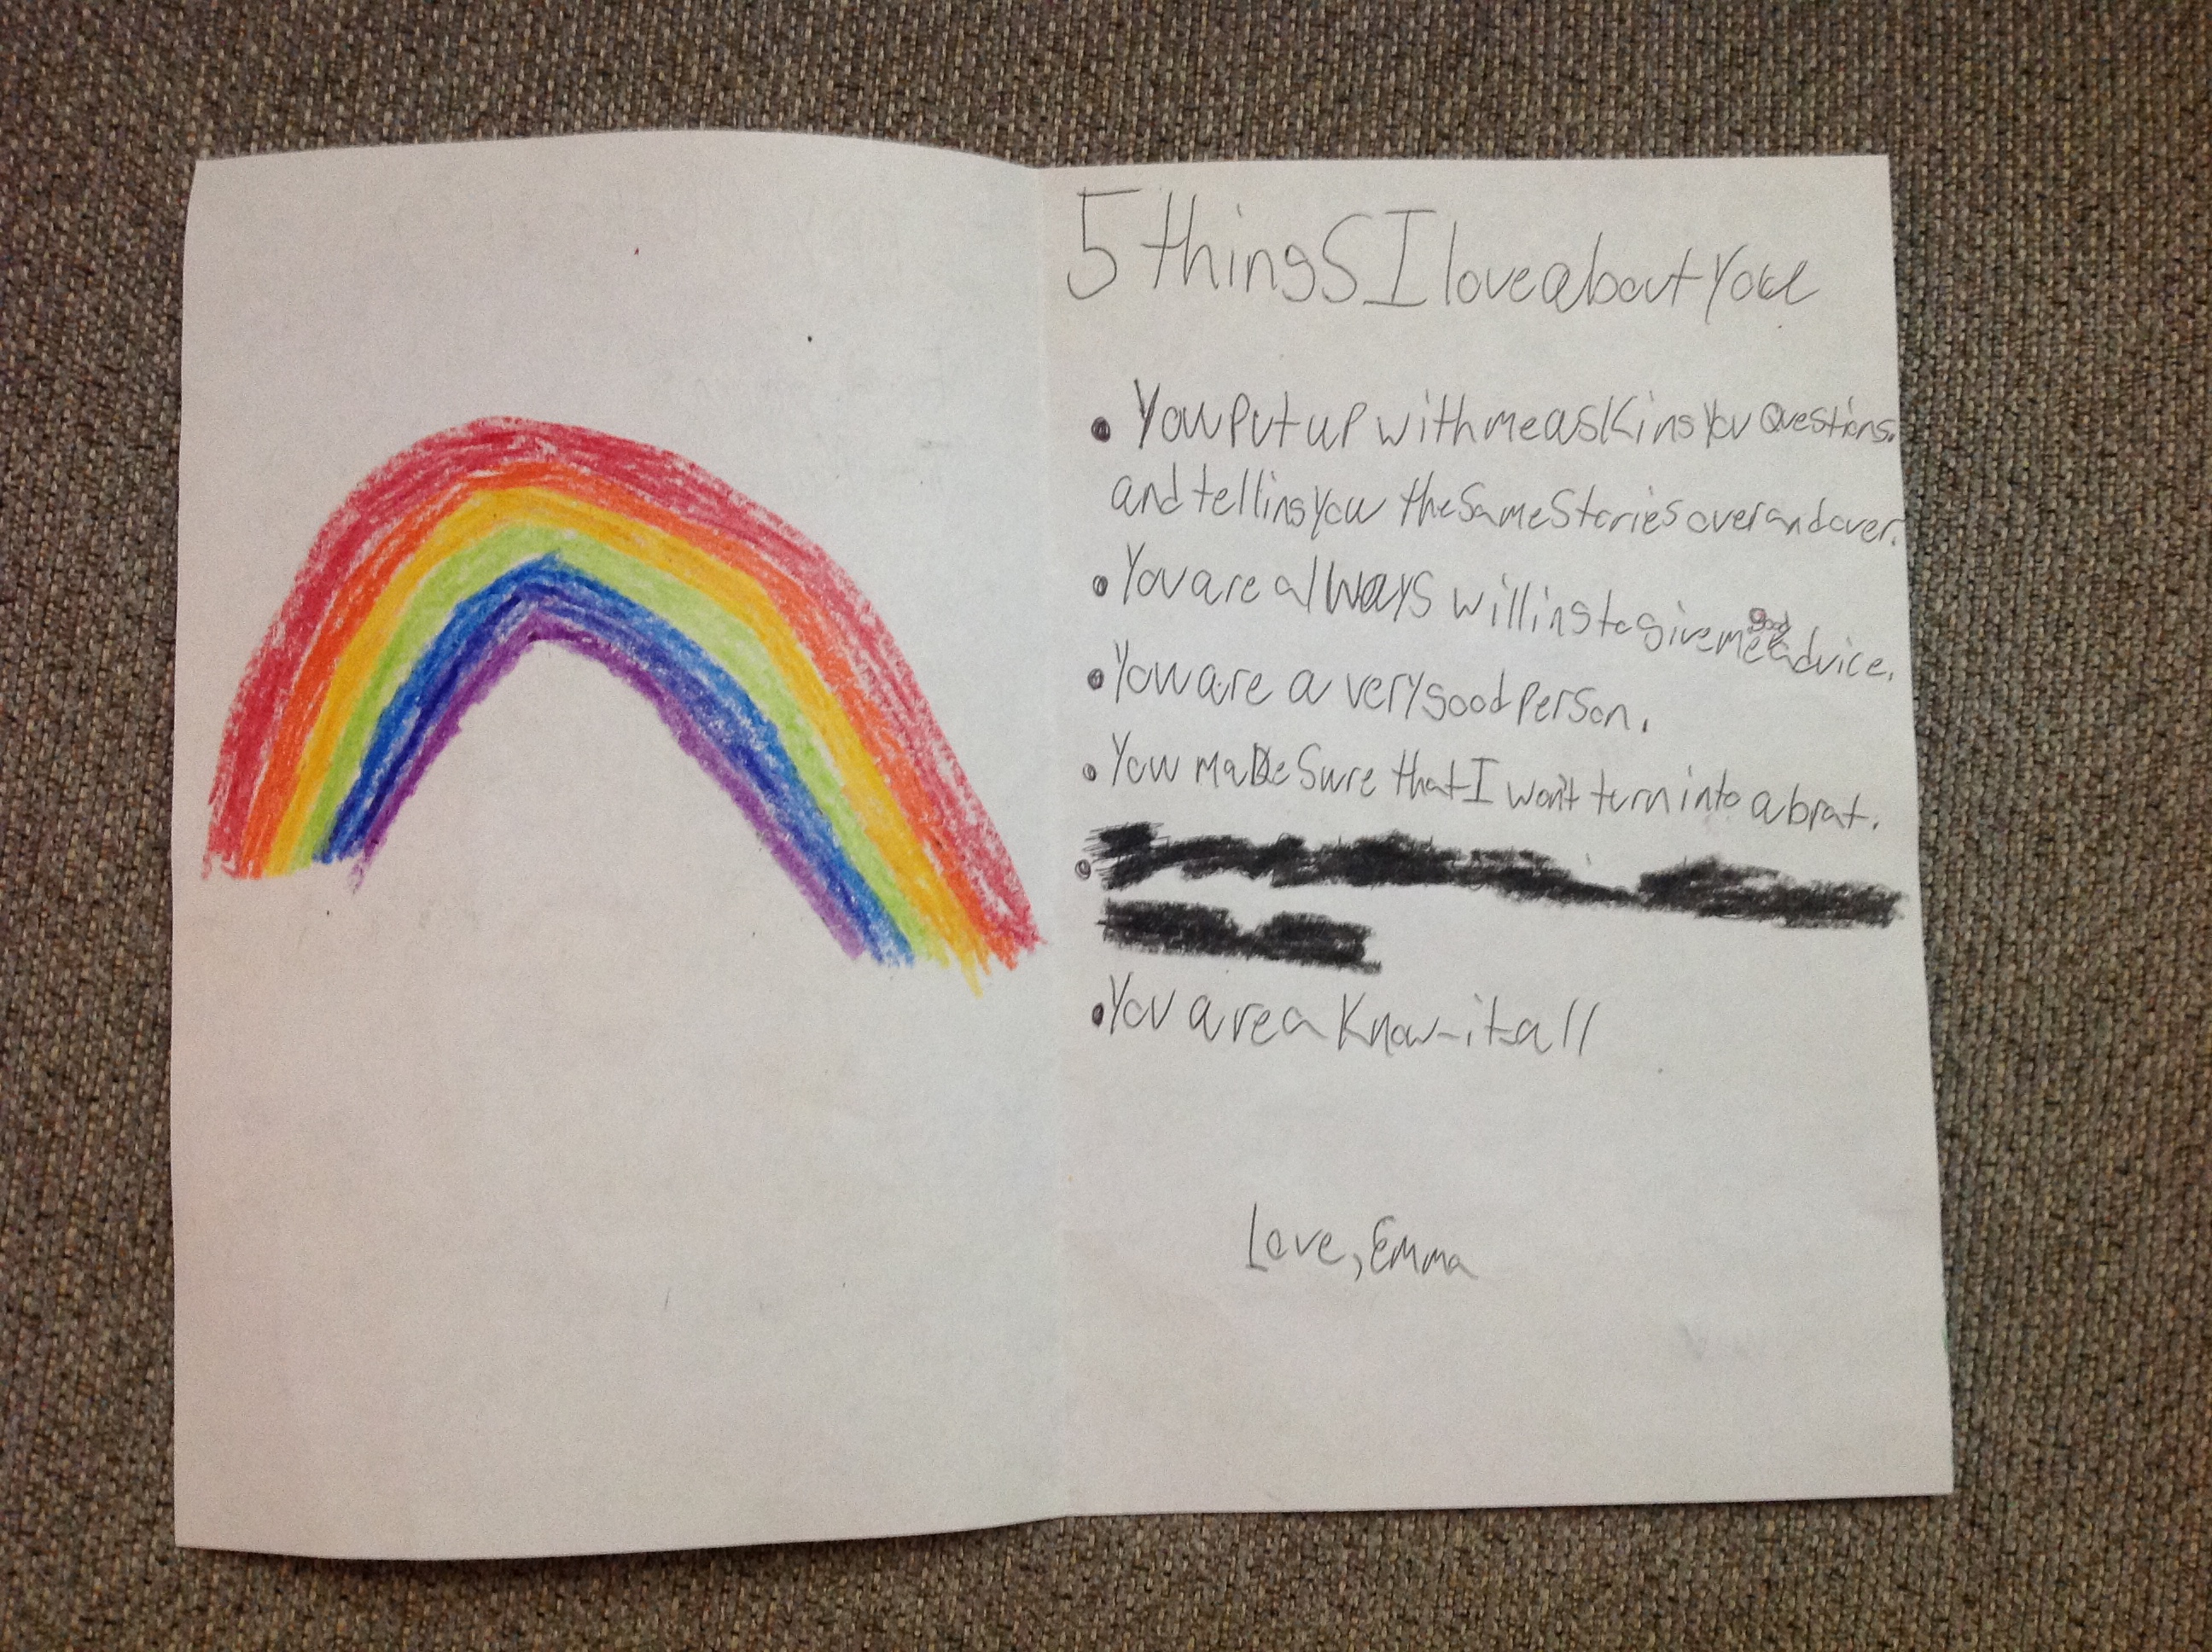 5 things I love about you
• You put up with me asking you questions.
and telling you the same stories over and over.
• You are always willing to give me good advice.
• You are a very good person.
• You make sure that I won't turn into a brat.
•
• You are a know-it-all
Love, Emma